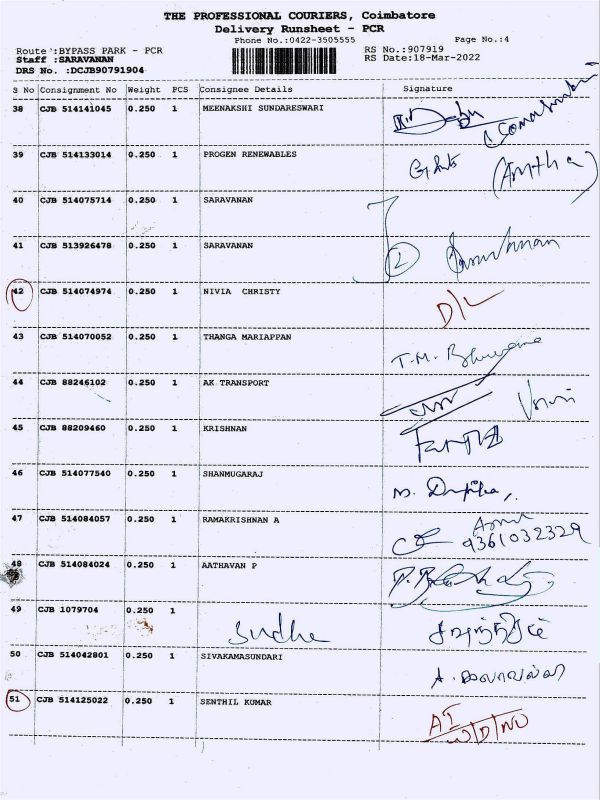 THE PROFESSIONAL COURIERS, Coimbatore
Delivery Runsheet - PCR
Phone No.:0422-3505555 Page No.:4
Route :BYPASS PARK - PCR RS No.:907919
Staff :SARAVANAN RS Date:18-Mar-2022
DRS No. :DCJB90791904
S No Consignment No Weight PCS Consignee Details Signature
38 CJB 514141045 0.250 1 MEENAKSHI SUNDARESWARI
39 CJB 514133014 0.250 1 PROGEN RENEWABLES
40 CJB 514075714 0.250 1 SARAVANAN
41 CJB 513926478 0.250 1 SARAVANAN 2
42 CJB 514074974 0.250 1 NIVIA CHRISTY D/L
43 CJB 514070052 0.250 1 THANGA MARIAPPAN T.M.
44 CJB 88246102 0.250 1 AK TRANSPORT
45 CJB 88209460 0.250 1 KRISHNAN
46 CJB 514077540 0.250 1 SHANMUGARAJ
47 CJB 514084057 0.250 1 RAMAKRISHNAN A 9361032329
48 CJB 514084024 0.250 1 AATHAVAN P
49 CJB 1079704 0.250 1 Sudha
50 CJB 514042801 0.250 1 SIVAKAMASUNDARI
51 CJB 514125022 0.250 1 SENTHIL KUMAR